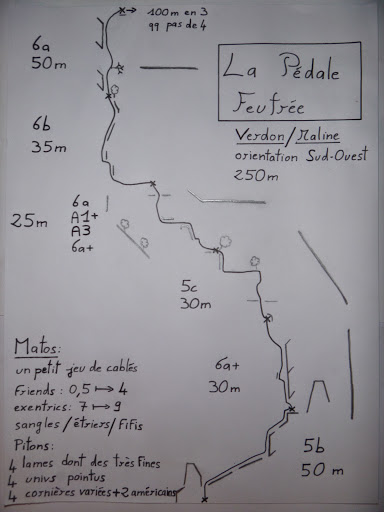 100m en 3
99 pas de 4
6a
50m
La Pédale
Feutrée
Verdon/Maline
orientation Sud-Ouest
250m
6b
35m
6a
A1+
A3
6a+
25m
5c
30m
6a+
30m
5b
50m
Matos:
un petit jeu de cablés
Friends: 0,5 ↦ 4
exentrics: 7 ↦ 9
sangles/étriers/FiFis
Pitons:
4 lames dont des très fines
4 univs pointus
4 cornières variées+2 américains